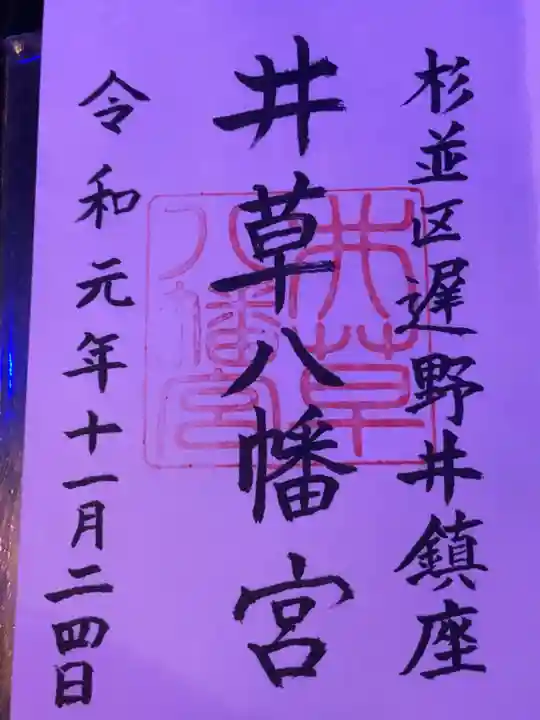 杉並区遅野井鎮座
井草八幡宮
令和元年十一月二四日
井草八幡宮